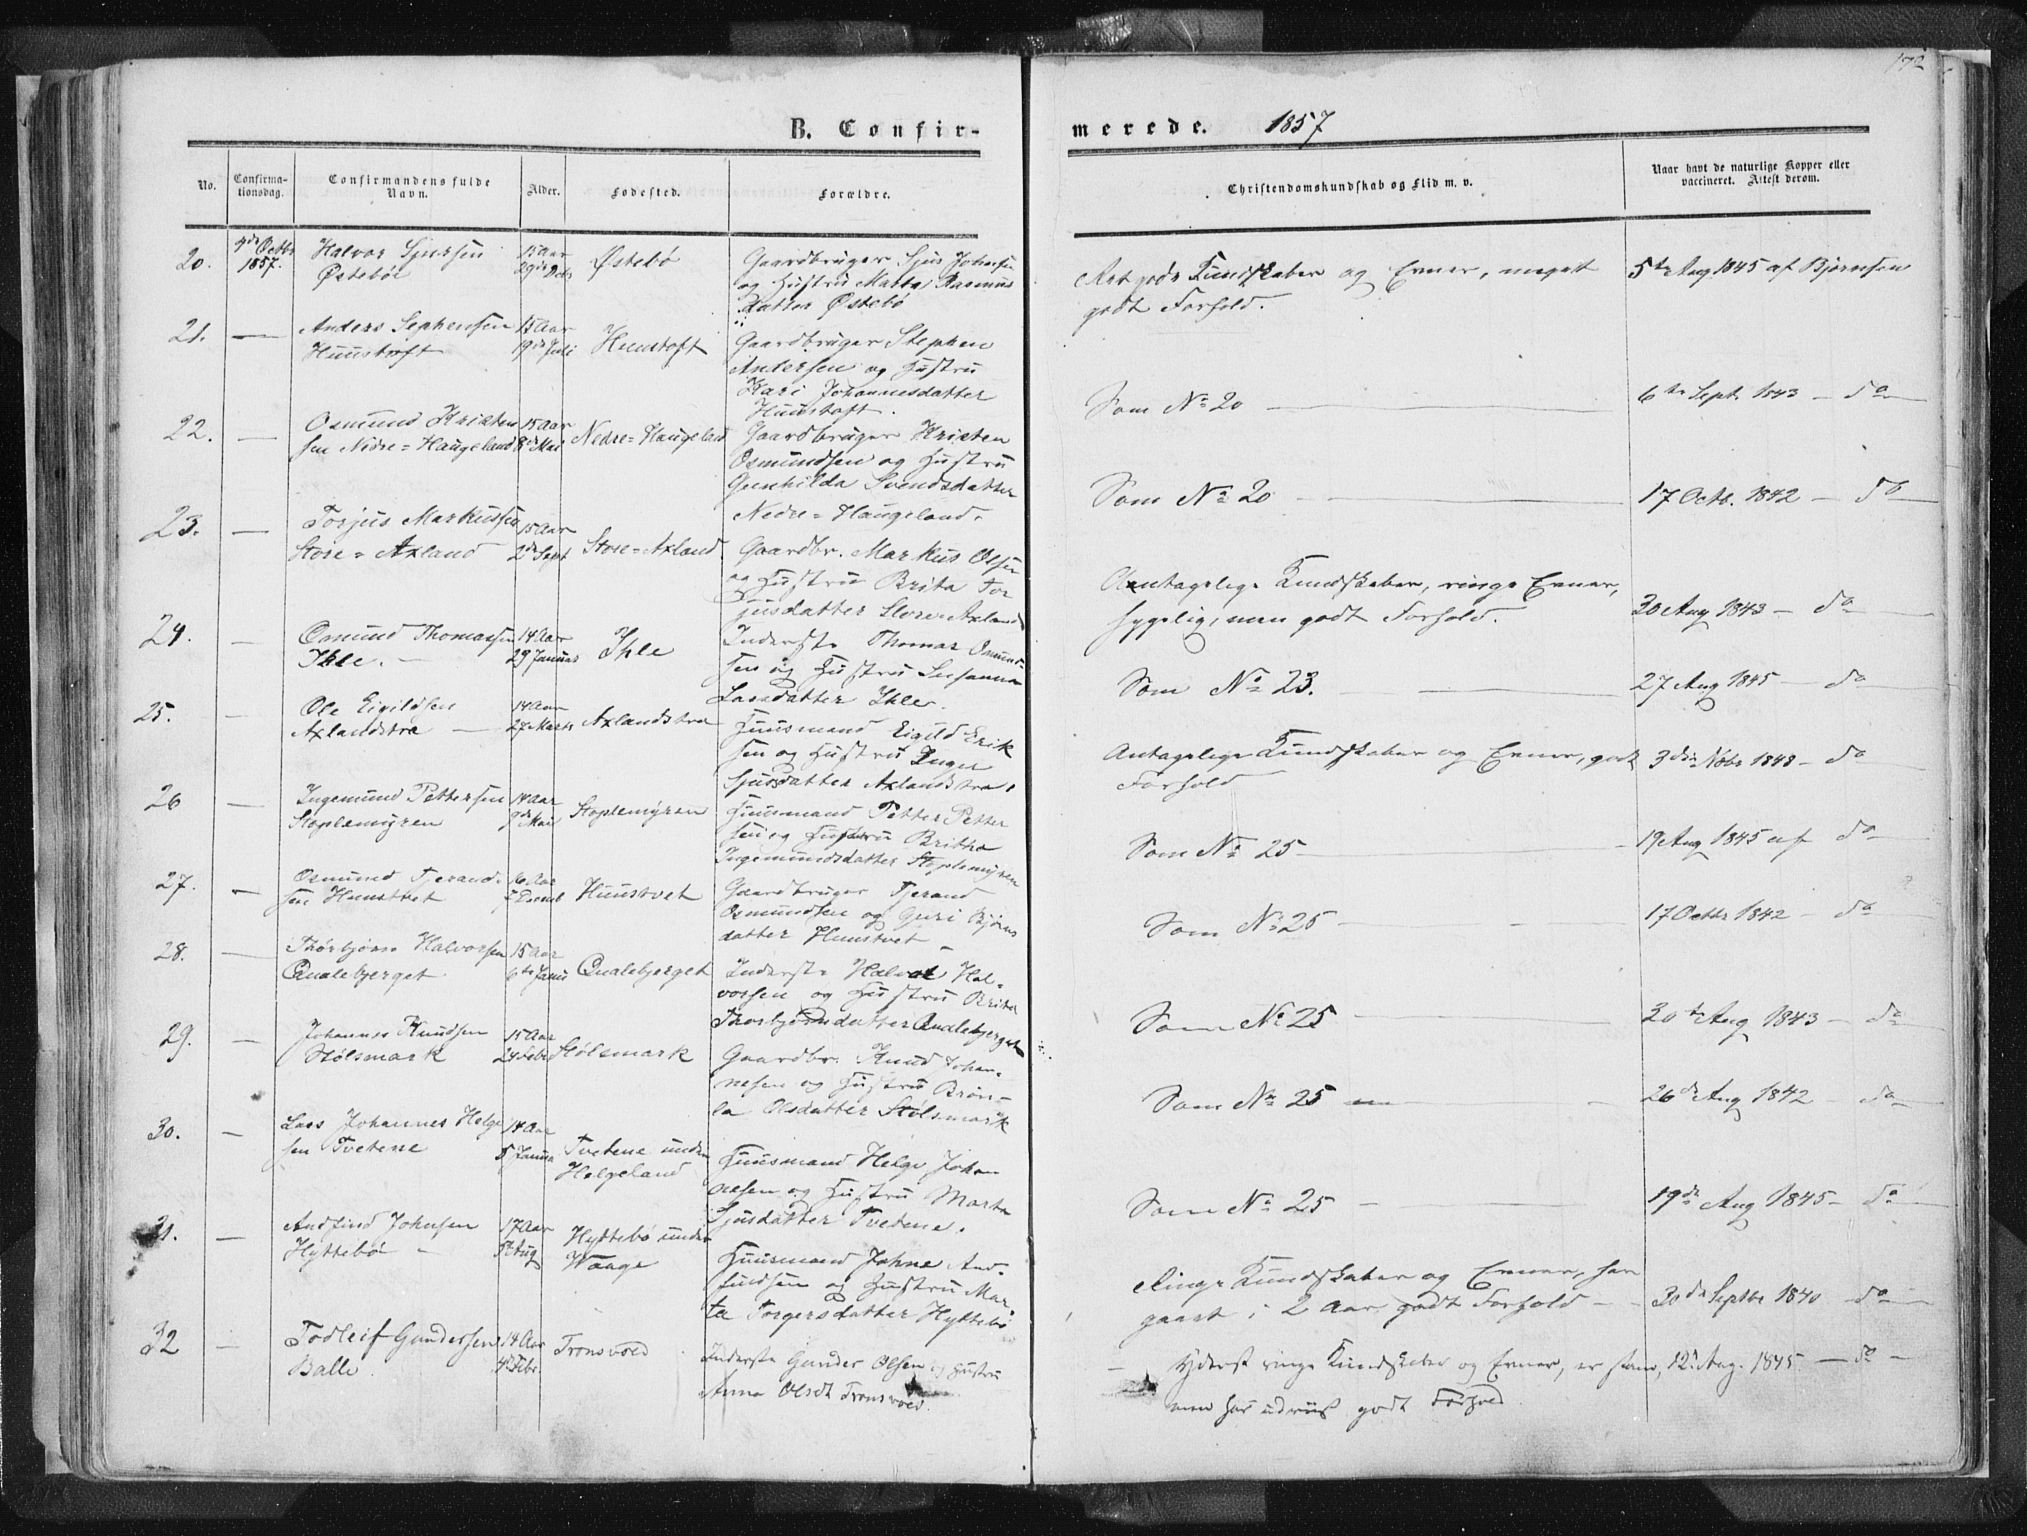 172
B. Confir-
merede. 1857
No.
Confirma-
tionsdag.
Confirmandens fulde
Navn.
Alder.
Fødested.
Forældre.
Christendomskundskab og Flid m. v.
Naar havt de naturlige Kopper eller
vaccineret. Attest derom.
20.
4de Octbr
1857.
Halvor Sjursen
Østeböe
15 Aar
29de
Østebö
Gaardbruger Sjur Johnsen
og Hustru Marta Rasmus
datter Østebö
godt Kundskaber og Evner, meget
godt Forhold.
5te Aug 1845 af Bjørnsen
21. —
Anders Sephensen
Huustoft
15 Aar
19de Juli
Huustoft
Gaardbruger Stephen
Andersen og Hustru
Kari Johannesdatter
Huustoft.
Som No 20 —
6te Sept 1843 — do
22. —
Osmund Kristen
sen Nedre=Haugeland
15 Aar
8de Mai
Nedre=Haugeland
Gaardbruger Kristen
Osmundsen og Hustru
Gunhilda Svendsdatter
Nedre=Haugeland.
Som No 20 —
17 Octb. 1842 — do
23. —
Torjus Markussen
Store=Axland
15 Aar
2de Sept
Store=Axland
Gaardbr. Markus Olsen
og Hustru Brita Tor
jusdatter Store=Axland
Antagelige Kundskaber, ringe Evner,
sygelig, men godt Forhold.
30 Aug 1843 — do
24. —
Osmund Thomassen
Ihle. —
14 Aar
29 Januar
Ihle
Inderste Thomas Osmund-
sen og Hustru Susanna
Larsdatter Ihle.
Som No 23. —
27 Aug 1845 — do
25. —
Ole Eigildsen
Axlandstra —
14 Aar
27 Marts
Axlandstra
Huusmand Eigild Erik
sen og Hustru Inger
Sjursdatter Axlandstra.
Antagelige Kundskaber og Evner, godt
Forhold
3die Nobr 1843 — do
26 —
Ingemund Pettersen
Stoplemyren
14 Aar
9de Mai
Stoplemyren
Huusmand Petter Petter
sen og Hustru Britha
Ingemundsdatter Stoplemyren
Som No 25 —
19 Aug 1845 af do
27. —
Osmund Tjerand-
sen Huustvet
16 Aar
Huustvet
Gaardbruger Tjerand
Osmundsen og Guri Bjørns
datter Huustvet —
Som No 25 —
17 Octbr 1842 — do
28. —
Thorbjørn Halvorsen
Qualebjerget
15 Aar
6te
Qualebjerget
Inderste Halvor Hal-
vorsen og Hustru Brita
Thorbjørnsdatter Qualebjerget
Som No 25 —
30te Aug 1843 — do
29. —
Johannes Knudsen
Stølsmark
15 Aar
24 Febr
Stølsmark
Gaardbr. Knud Johan-
nesen og Hustru Brøn-
la Olsdatter Stølsmark
Som No 25 —
26de Aug 1842 — do
30. —
Lars Johannes Helge
sen Tvetene
14 Aar
Tvetene under
Helgeland
Huusmand Helge Johan
nesen og Hustru Marta
Sjursdatter Tvetene.
Som No 25 —
19de Aug 1845 — do
31. —
Andfind Johnsen
Hyttebö —
17 Aar
5te Aug
Hyttebö under
Waage
Huusmand Johne And-
findsen og Hustru Mar-
ta Torgersdatter Hyttebö
Ringe Kundskaber og Evner, har
gaaet i 2 Aar, godt Forhold —
30de Septbr 1840 do
32 —
Todleif Gundersen
Balle.
14 Aar
4de Febr.
Tronsvoed
Inderste Gunder Olsen og Hustru
Anna Olsdt Tronsvoed.
— Yderst ringe Kundskaber og Evner, er
men har udviist godt Forhold
12te Aug. 1845 — do —